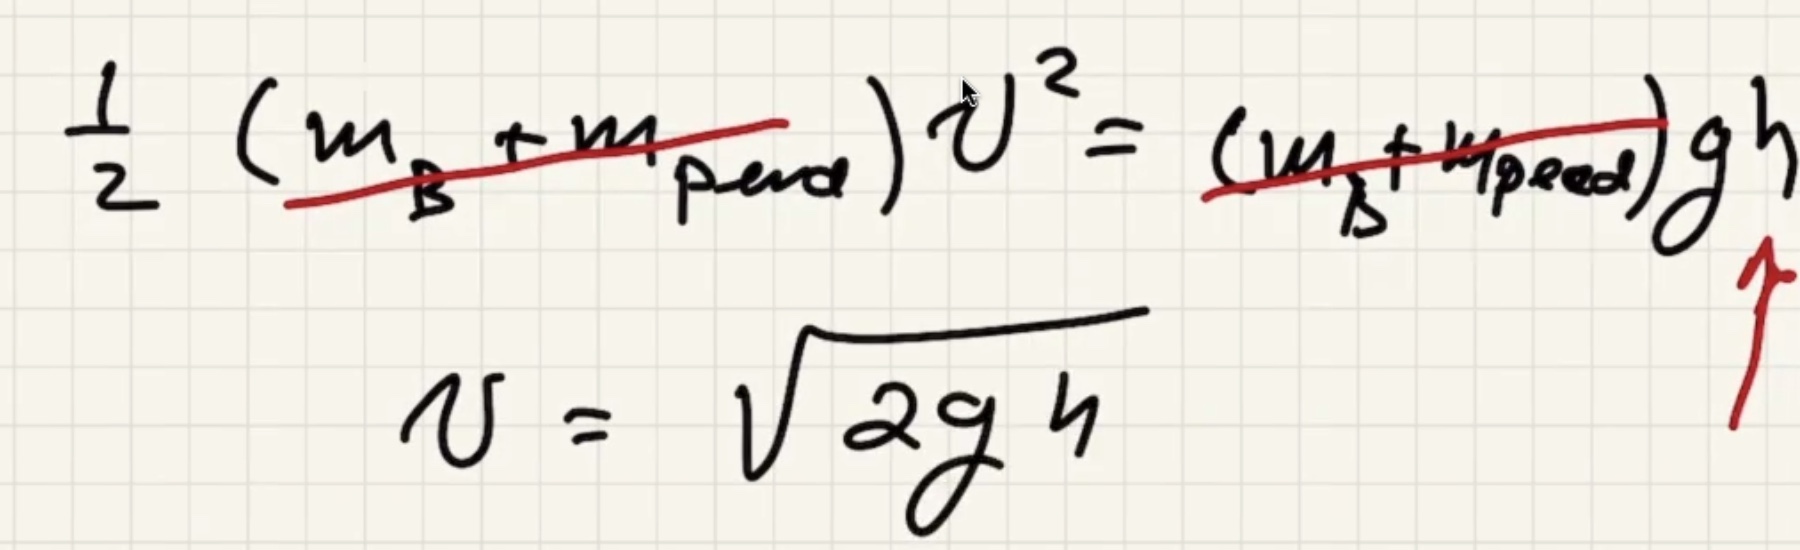 ½ (m_B + m_pend) v² = (m_B + m_pend) g h
v = √(2 g h)